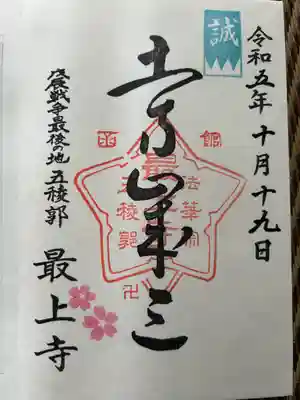 誠
令和五年 十月十九日
土方歳三
函館
法華宗
最上寺
五稜郭
卍
戊辰戦争最後の地 五稜郭
最上寺